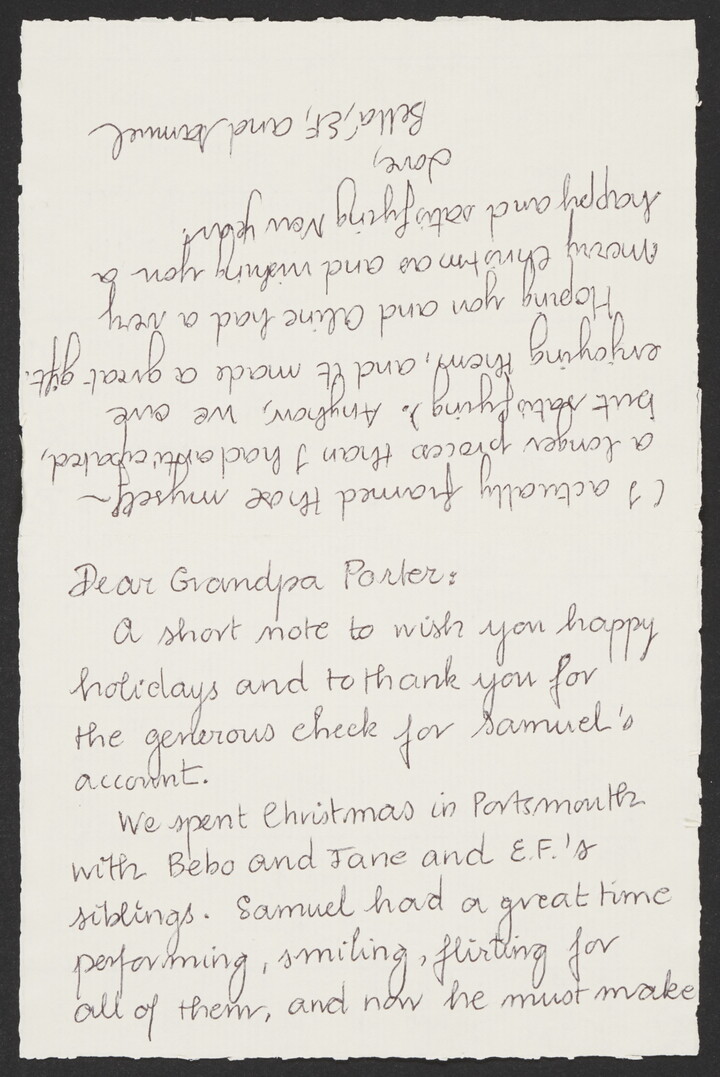 Dear Grandpa Porter:
A short note to wish you happy
holidays and to thank you for
the generous check for Samuel's
account.
We spent Christmas in Portsmouth
with Bebo and Jane and E.F.'s
siblings. Samuel had a great time
performing, smiling, flirting for
all of them, and now he must make
(I actually framed those myself~
a longer process than I had anticipated,
but satisfying). Anyhow, we are
enjoying them, and it made a great gift.
Hoping you and Aline had a very
merry Christmas and wishing you a
happy and satisfying New year!
Love,
Bella, E.F., and Samuel